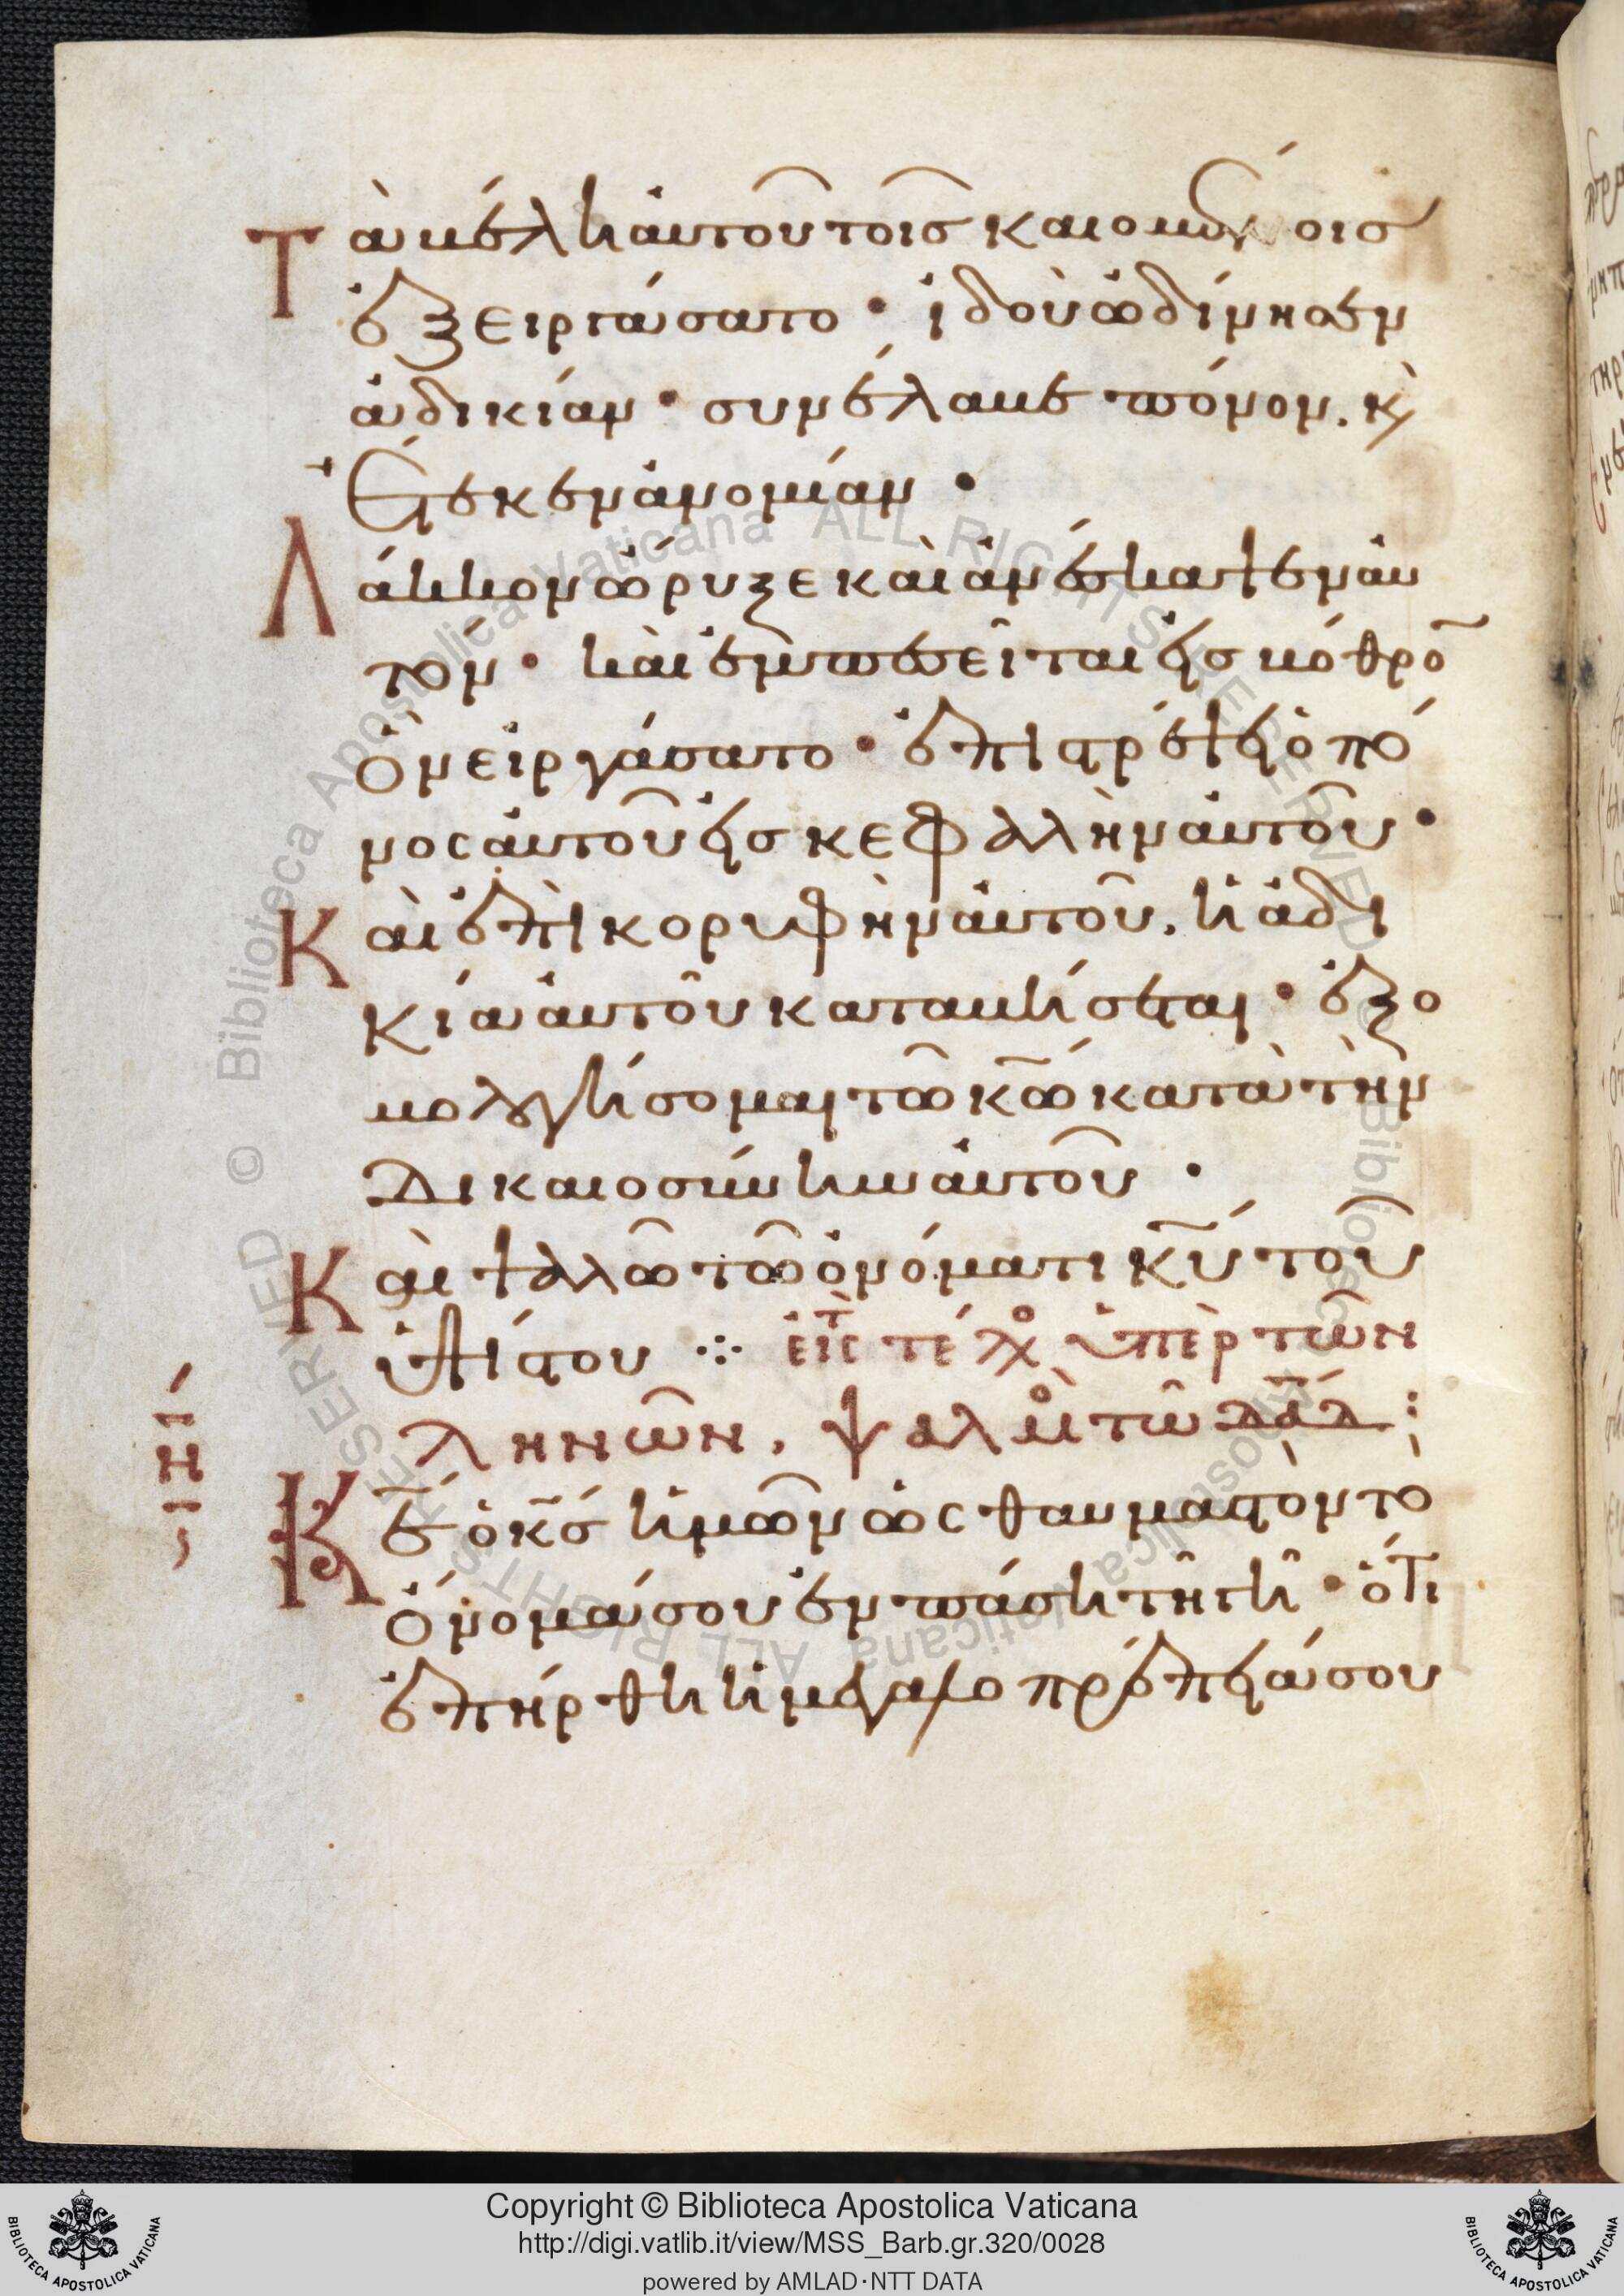 Τὰ βέλη αὐτοῦ τοῖς καιομένοις
ἐξειργάσατο · ἰδοὺ ὠδίνησεν
ἀδικίαν · συνέλαβε πόνον. κ(αὶ)
ἔτεκεν ἀνομίαν ·
Λάκκον ὤρυξε καὶ ἀνέσκαψεν αὐ
τόν · καὶ ἐμπεσεῖται εἰς βόθρο̅
ὃν εἰργάσατο · ἐπιστρέψει ὁ πό
νος αὐτοῦ εἰς κεφαλὴν αὐτοῦ ·
Καὶ ἐπὶ κορυφὴν αὐτοῦ. ἡ ἀδι
κία αὐτοῦ καταβήσεται · ἐξο
μολογήσομαι τῶ κ̅ω̅ κατὰ τὴν
δικαιοσύνην αὐτοῦ ·
Καὶ ψαλῶ τῶ ὀνόματι κ̅υ̅ τοῦ
ὑψίστου ⁘ εἰς τὸ τέλο ὑπὲρ τῶν
ληνῶν. ψαλμὸ τῶ δ̅α̅δ̅ :
η
Κ̅ε̅ ὁ κ̅ς̅ ἡμῶν ὡς θαυμαστὸν τὸ
ὄνομά σου ἐν πάση τῆ γῆ · ὅτι
ἐπήρθη ἡ μεγαλοπρέπειά σου
Copyright © Biblioteca Apostolica Vaticana
http://digi.vatlib.it/view/MSS_Barb.gr.320/0028
powered by AMLAD·NTT DATA
BIBLIOTECA APOSTOLICA VATICANA
BIBLIOTECA APOSTOLICA VATICANA
© Biblioteca Apostolica Vaticana ALL RIGHTS RESERVED
© Biblioteca Apostolica Vaticana ALL RIGHTS RESERVED